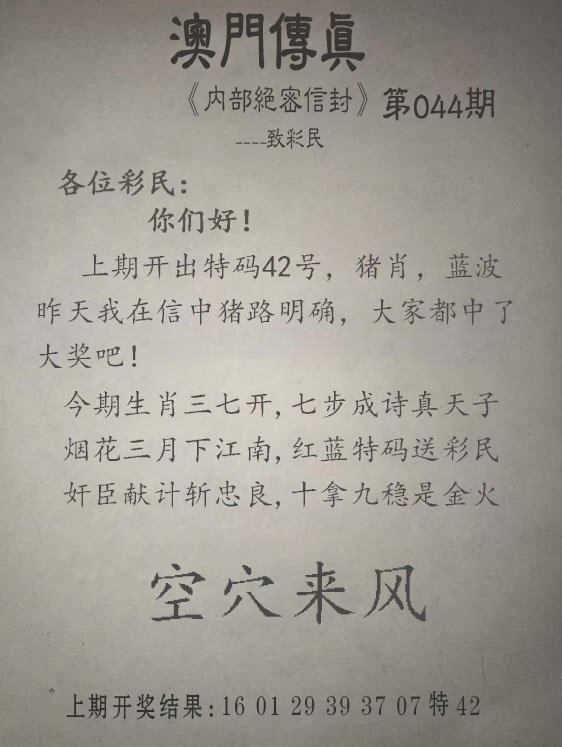 澳門傳眞
《内部絕密信封》第044期
----致彩民
各位彩民：
你们好！
上期开出特码42号，猪肖，蓝波
昨天我在信中猪路明确，大家都中了
大奖吧！
今期生肖三七开,七步成诗真天子
烟花三月下江南,红蓝特码送彩民
奸臣献计斩忠良,十拿九稳是金火
空穴来风
上期开奖结果：16 01 29 39 37 07 特 42